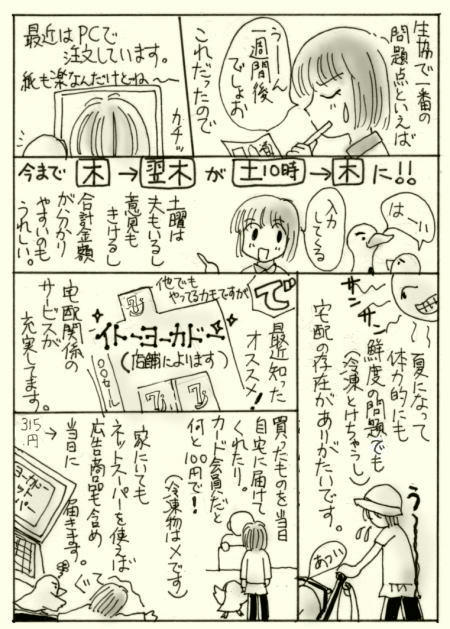 生協で一番の
問題点といえば
うーーん
一週間後
でしょお
これだったので
最近はPCで
注文しています。
紙も楽なんだけどね〜〜
カチッ
今まで 木 → 翌木 が 土10時 → 木 に!!
はーい
入力
してくる
土曜は
夫もいるし
意見も
きけるし
合計金額
がわかり
やすいのも
うれしい。
サン
サン
夏になって
体力的にも
鮮度の問題でも
(冷凍とけちゃうし)
宅配の存在がありがたいです。
う〜
あつい
で
最近知った
オススメ!
他でも
やってるカモですが
イトーヨーカドー
(店舗によります)
宅配関係の
サービスが
充実してます。
買ったものを当日
自宅に届けて
くれたり。
カード会員だと
何と100円で!
(冷凍物は×です)
家にいても
ネットスーパーを使えば
広告商品も含め
当日に
届きます。
315
円
→